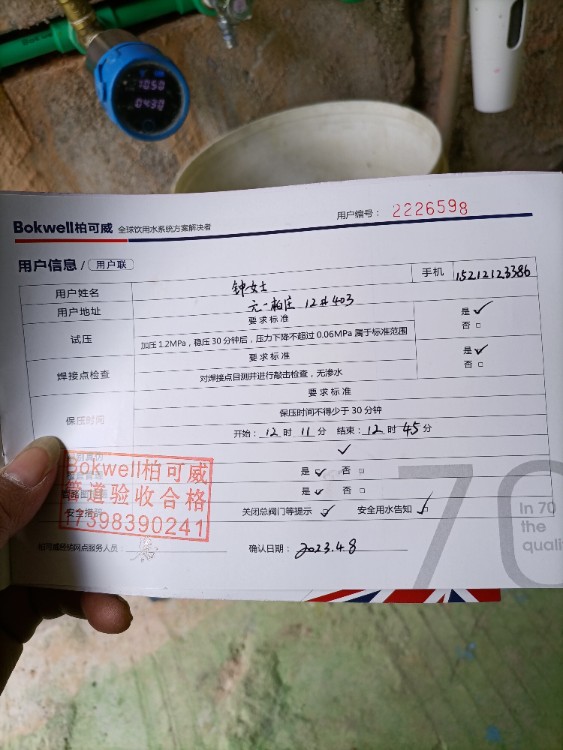 1050
0430
Bokwell柏可威 全球饮用水系统方案解决者
用户编号： 2226598
用户信息 / 用户联
用户姓名 钟女士 手机 15212123386
用户地址 元一柏庄 12#403
试压 要求标准 是 ✓
加压 1.2MPa，稳压 30 分钟后，压力下降不超过 0.06MPa 属于标准范围 否 □
焊接点检查 要求标准 是 ✓
对焊接点目测并进行敲击检查，无渗水 否 □
保压时间 要求标准
保压时间不得少于 30 分钟
开始：12 时 11 分 结束：12 时 45 分
✓
是 ✓ 否 □
是 ✓ 否 □
安全 关闭总阀门等提示 ✓ 安全用水告知 ✓
Bokwell柏可威
管道验收合格
17398390241
柏可威经销网点服务人员：
确认日期： 2023.4.8
70
In 70
the
quali